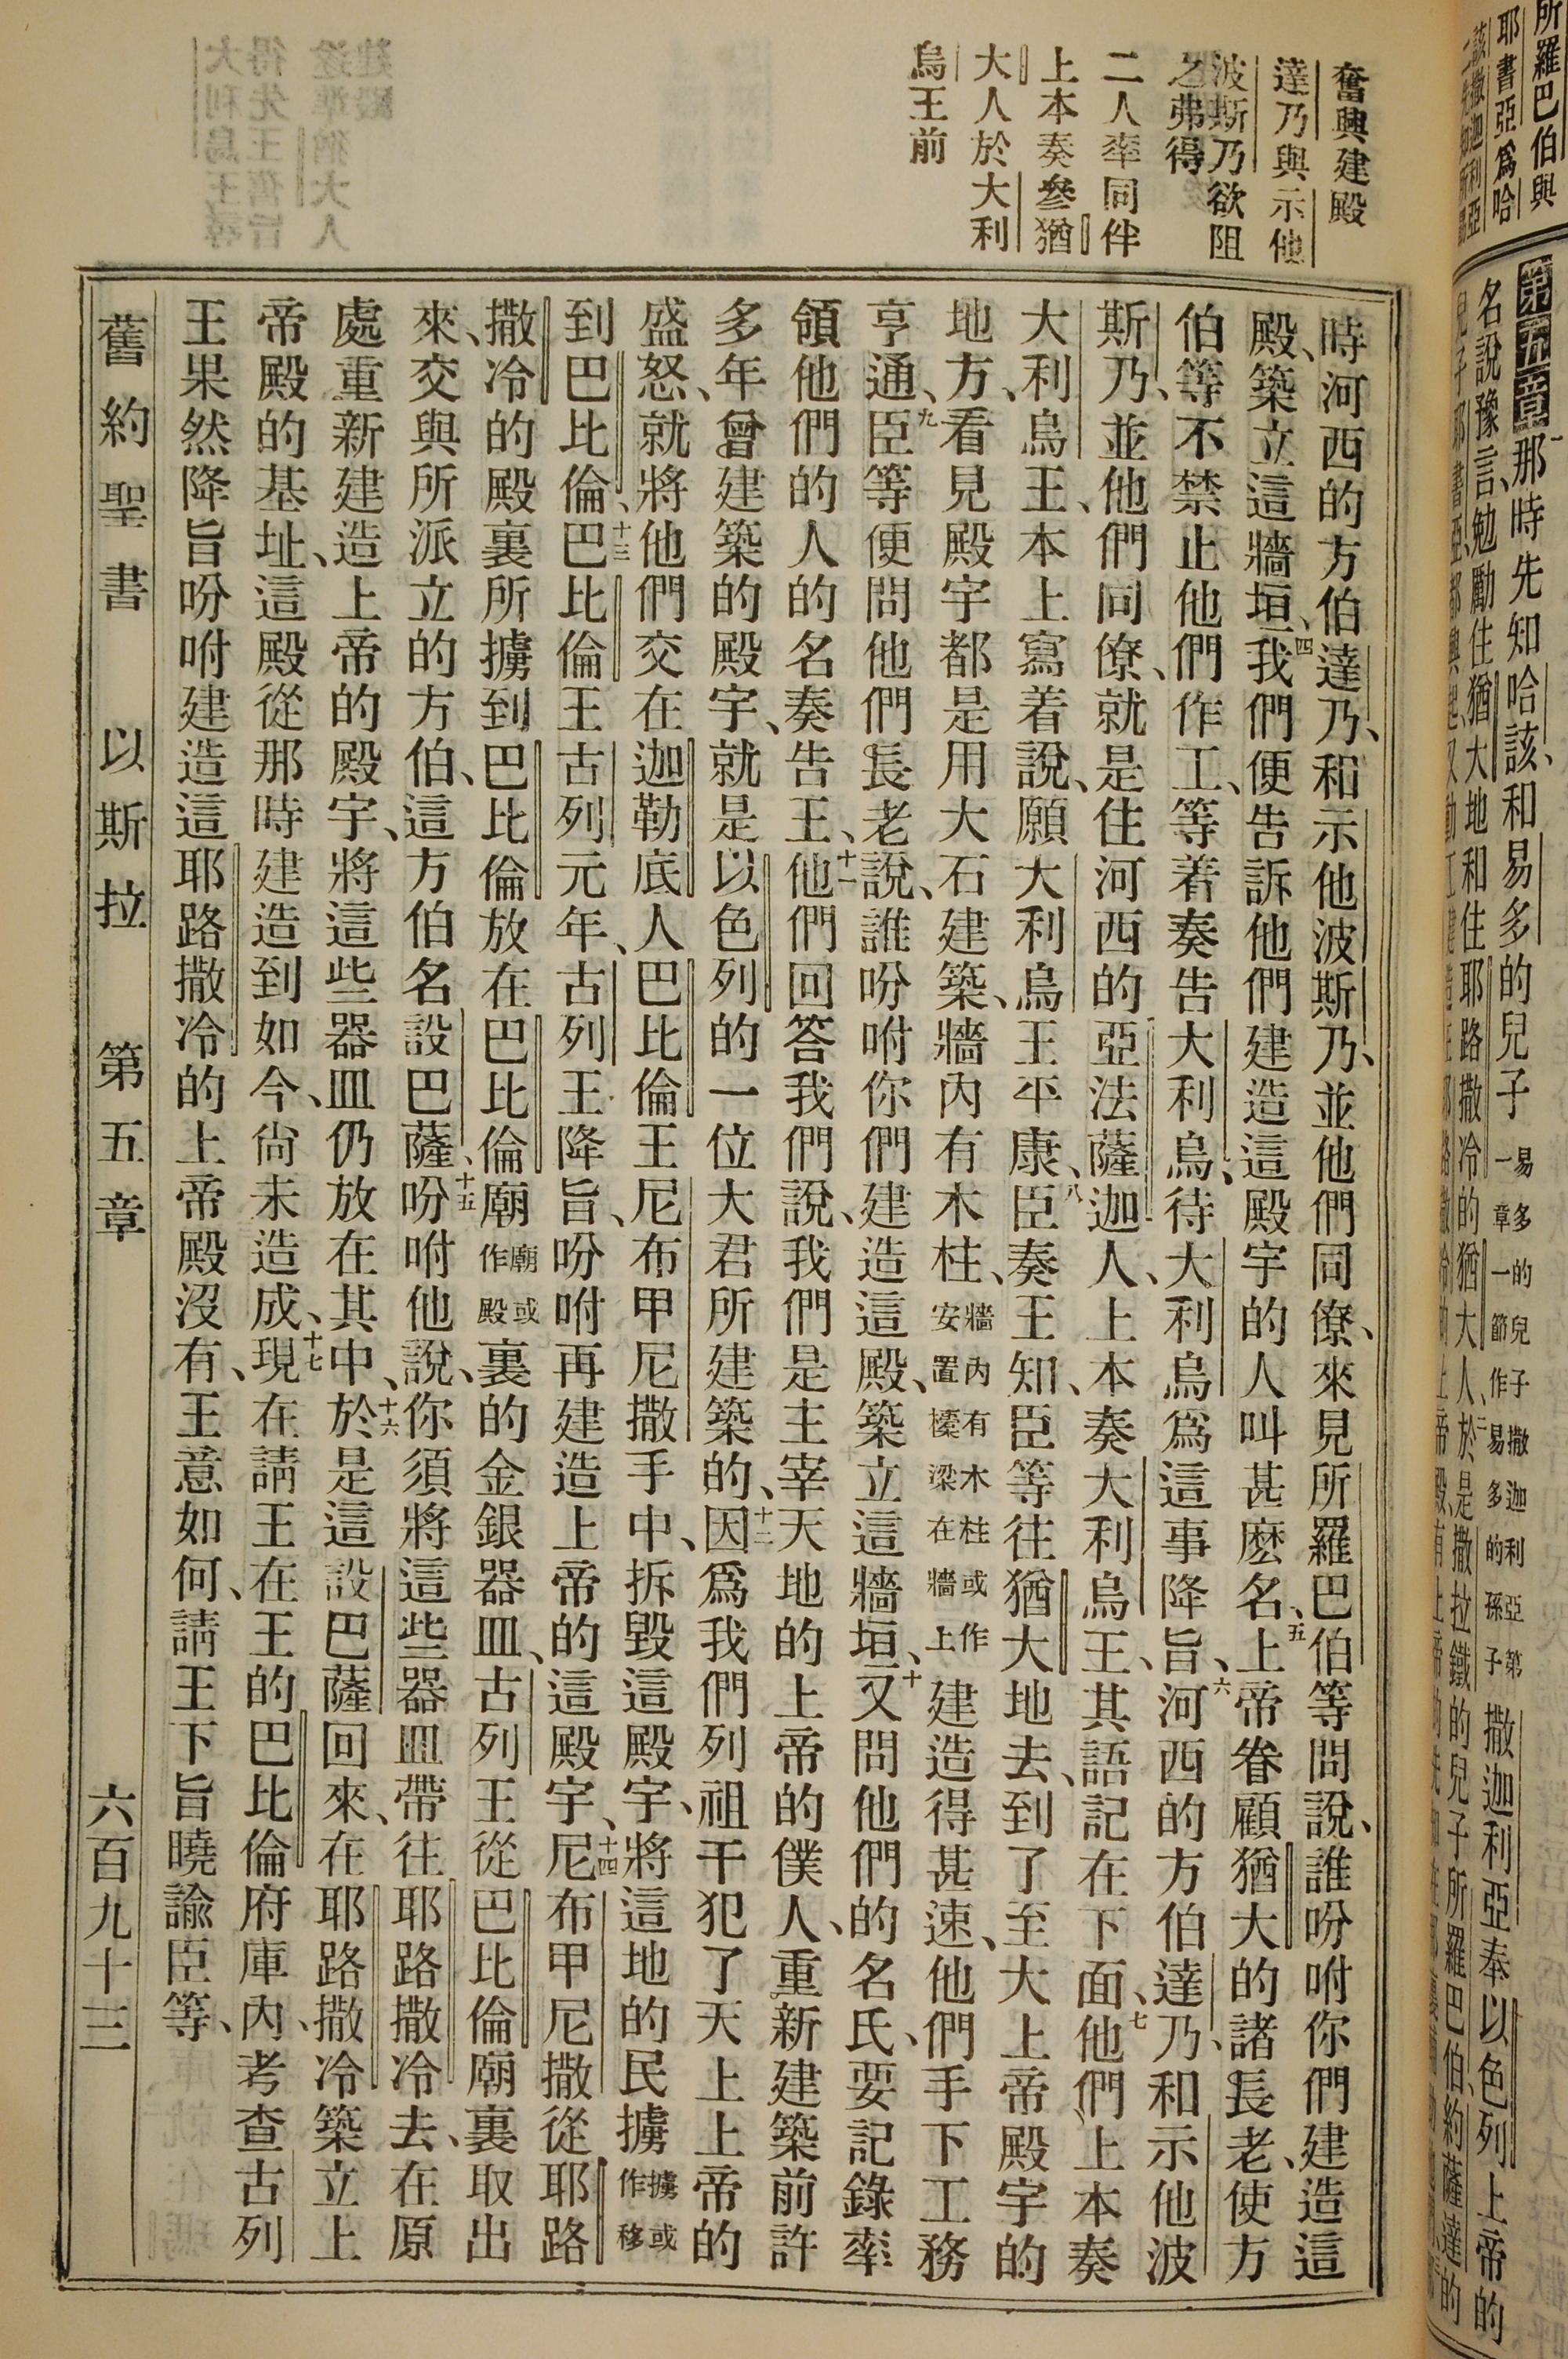 奮興建殿
達乃與示他
波斯乃欲阻
之弗得
二人率同伴
上本奏參猶
大人於大利
烏王前
第五章一那時先知哈該、和易多的兒子易多的兒子撒迦利亞第一章一節作易多的孫子撒迦利亞奉以色列上帝的
名說豫言、勉勵住猶大地和住耶路撒冷的猶大人、二於是撒拉鐵的兒子所羅巴伯、約薩達的
時河西的方伯達乃、和示他波斯乃、並他們同僚、來見所羅巴伯等問說、誰吩咐你們建造這
殿、築立這牆垣、四我們便告訴他們建造這殿宇的人叫甚麽名、五上帝眷顧猶大的諸長老、使方
伯等不禁止他們作工、等着奏告大利烏、待大利烏爲這事降旨、六河西的方伯達乃、和示他波
斯乃、並他們同僚、就是住河西的亞法薩迦人、上本奏大利烏王、其語記在下面、七他們上本奏
大利烏王、本上寫着說、願大利烏王平康、八臣奏王知、臣等往猶大地去、到了至大上帝殿宇的
地方、看見殿宇都是用大石建築、牆內有木柱、牆內有木柱或作安置樑梁在牆上建造得甚速、他們手下工務
亨通、九臣等便問他們長老說、誰吩咐你們建造這殿、築立這牆垣、十又問他們的名氏、要記錄率
領他們的人的名奏告王、十一他們回答我們說、我們是主宰天地的上帝的僕人、重新建築前許
多年曾建築的殿宇、就是以色列的一位大君所建築的、十二因爲我們列祖干犯了天上上帝的
盛怒、就將他們交在迦勒底人巴比倫王尼布甲尼撒手中、拆毀這殿宇、將這地的民擄擄或作移
到巴比倫、十三巴比倫王古列元年、古列王降旨、吩咐再建造上帝的這殿宇、十四尼布甲尼撒從耶路
撒冷的殿裏所擄到巴比倫放在巴比倫廟廟或作殿裏的金銀器皿、古列王從巴比倫廟裏取出
來、交與所派立的方伯、這方伯名設巴薩、十五吩咐他說、你須將這些器皿帶往耶路撒冷去、在原
處重新建造上帝的殿宇、將這些器皿仍放在其中、十六於是這設巴薩回來、在耶路撒冷築立上
帝殿的基址、這殿從那時建造到如今、尙未造成、十七現在請王在王的巴比倫府庫內、考查古列
王果然降旨吩咐建造這耶路撒冷的上帝殿沒有、王意如何、請王下旨曉諭臣等、
舊約聖書 以斯拉 第五章 六百九十三